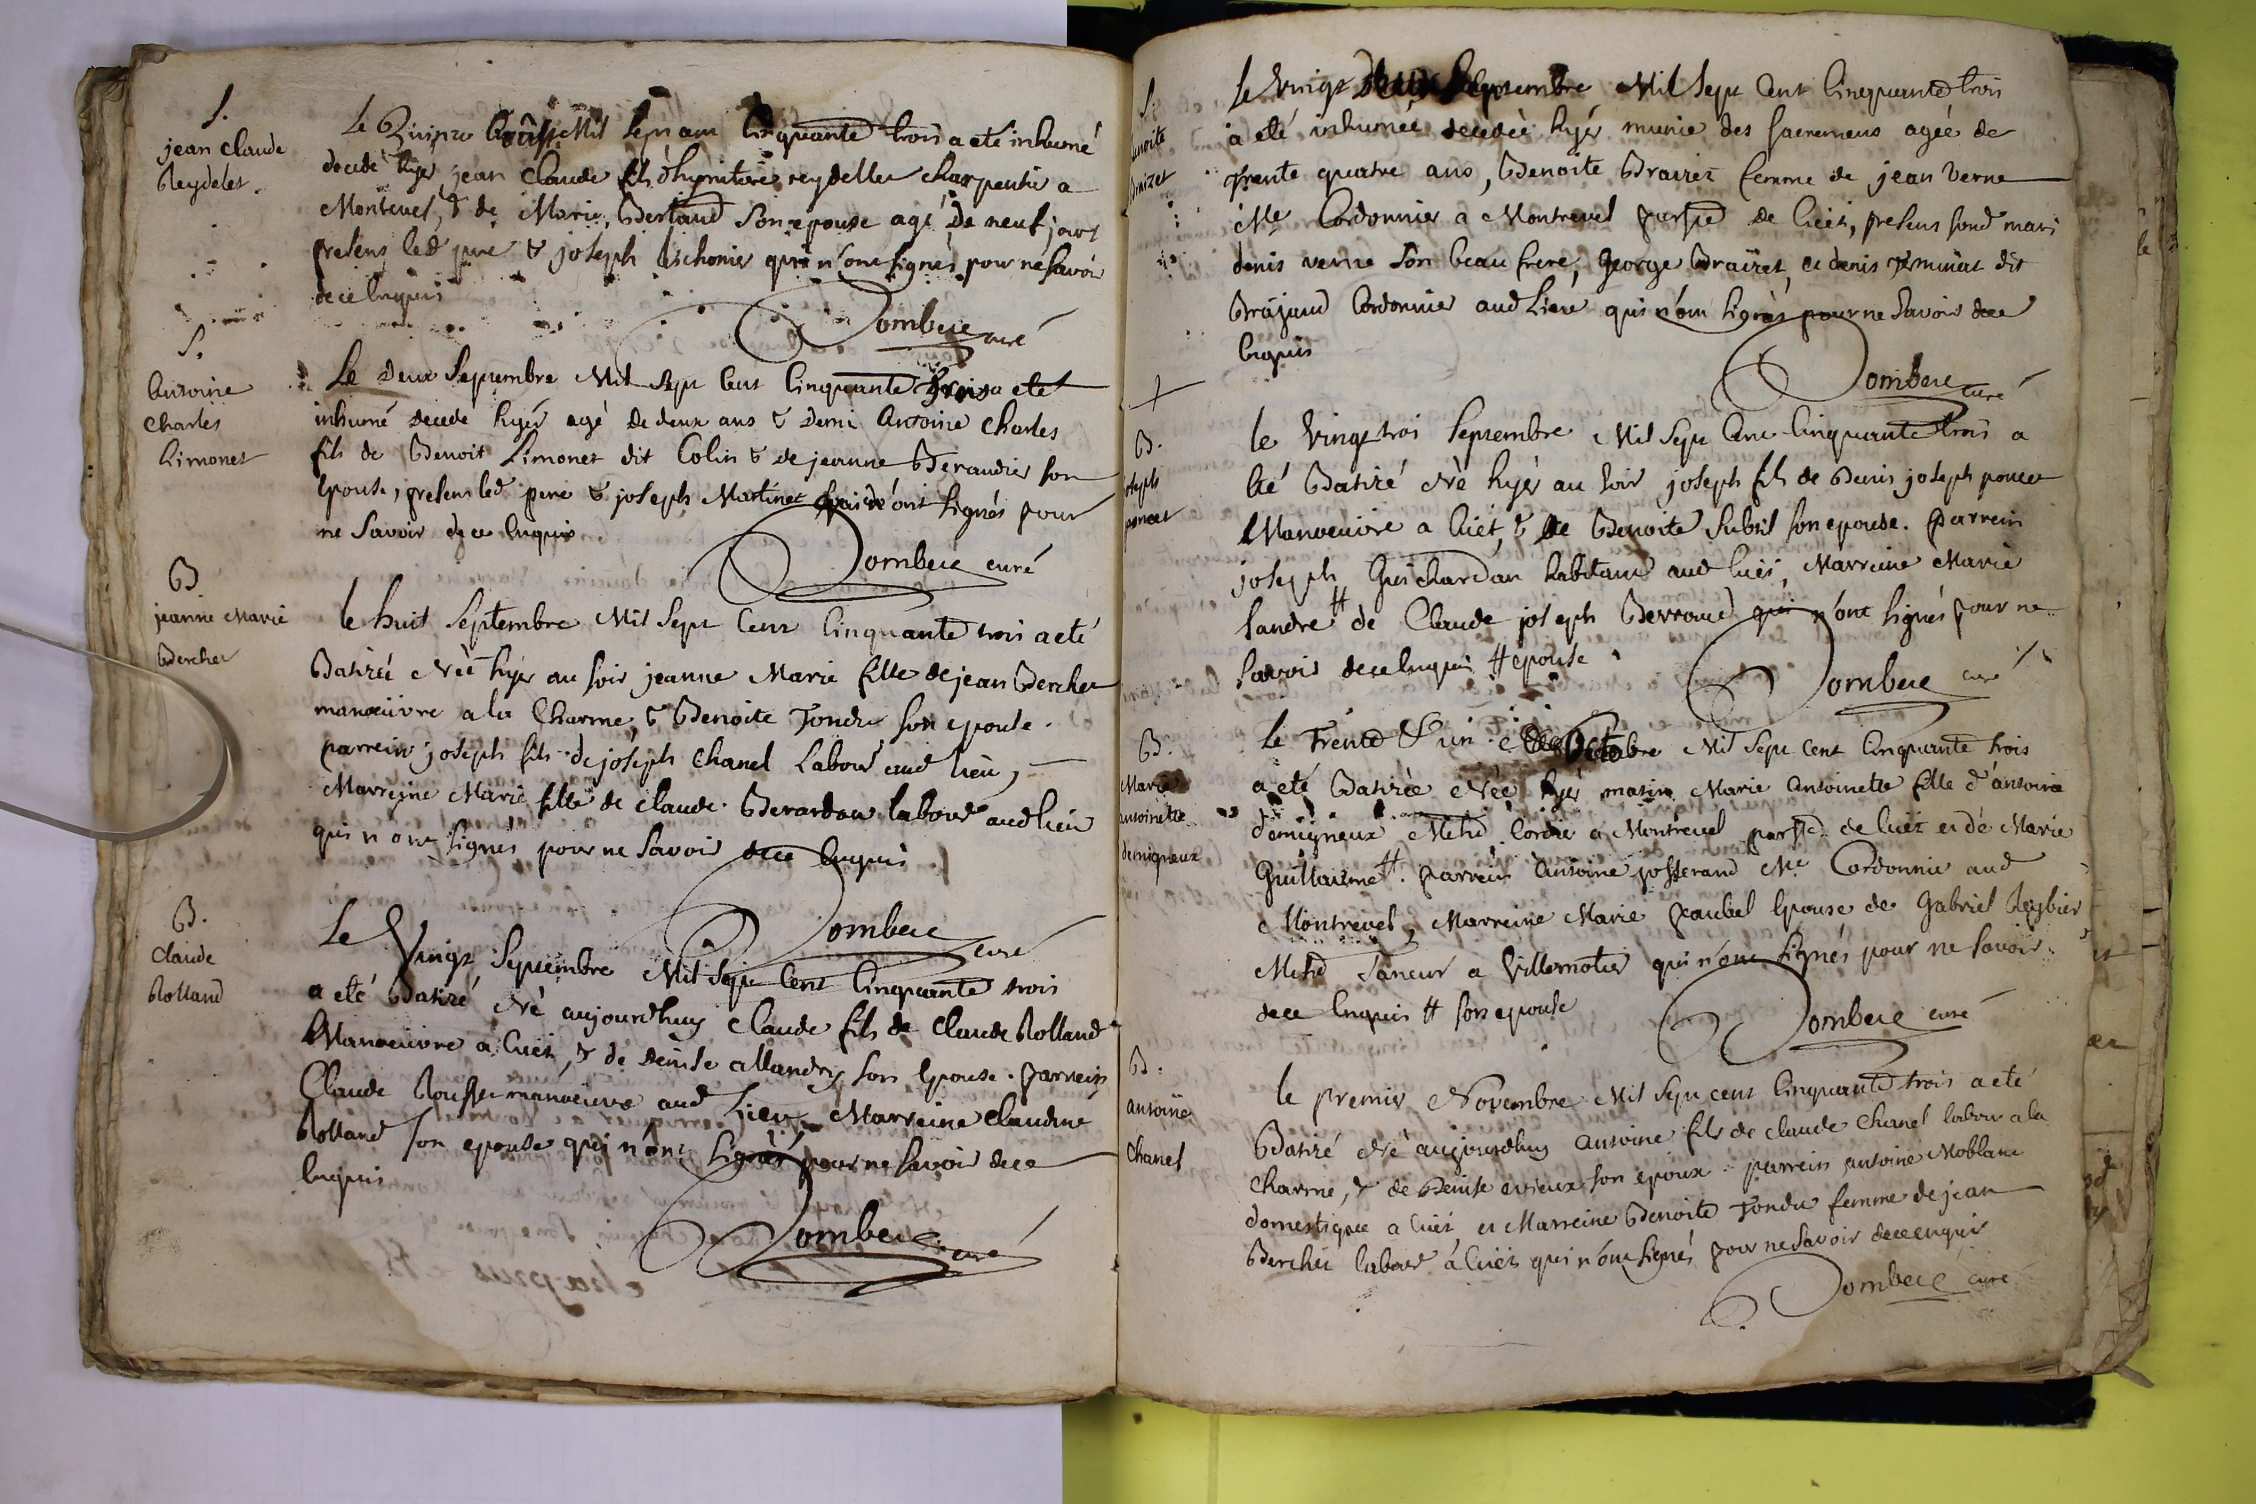 S.
jean claude
Reydelet.
Le Quinze Août Mil Sept cent Cinquante trois a eté inhumé
decedé hyer jean Claude fils d'hymitere reydellet charpentier a
Montrevel, & de Marie Bertaud son epouse agé de neuf jours
presens led pere & joseph qui n'ont signés pour ne savoir
de ce Enquis
Dombeie curé
S.
Antoine
Charles
Limonet
Le Deux Septembre Mil Sept Cent Cinquante Trois a eté
inhumé decedé hyér agé de deux ans & demi Antoine Charles
fils de Benoit Limonet dit Colin & de jeanne Beraudier son
Epouse, presens led pere & joseph Martinet qui n'ont signés pour
ne Savoir de ce Enquis
Dombeie curé
B
jeanne Marie
Bercher
le huit Septembre Mil Sept Cent Cinquante trois a eté
Batizée Née hyér au soir jeanne Marie fille de jean Bercher
manœuvre a la Charme, & Benoite Tondu son epouse.
parrein joseph fils de joseph Chanel Labour aud lieu,
Marreine Marie fille de claude Berardan labour aud lieu
qui n'ont signés pour ne Savoir de ce Enquis
Dombeie curé
B.
Claude
Rolland
Le Vingt Septembre Mil Sept Cent Cinquante trois
a eté Batizé Né aujourdhuy Claude fils de Claude Rolland
Manoeuvre a Cuet, & de denise allandry son Epouse. parrein
Claude manoeuvre aud Lieu Marreine Claudine
Rolland son epouse qui n'ont signés pour ne savoir de ce
Enquis
Dombeie curé
S.
Benoite
Braizet
Le Vingt Deux Septembre Mil Sept Cent Cinquante trois
a eté inhumée decédée hyér munie des sacremens agée de
Trente quatre ans, Benoite Braizet femme de jean Verne
Me Cordonnier a Montrevel partie de Cuet, presens sond mari
denis verne son beau frere, George Braizet, et denis dit
Brajaud Cordonnier aud Lieu qui n'ont signés pour ne Savoir de ce
Enquis
Dombeie curé
B.
joseph
poncet
le Vingt trois Septembre Mil Sept Cent Cinquante trois a
eté Batizé Né hyér au soir joseph fils de Denis joseph poncet
Manoeuvre a Cuet, & de Benoite Subtil son epouse. Parrein
joseph Guichardan habitant aud Cuet, Marreine Marie
Sandre # de Claude joseph Berroud qui n'ont signés pour ne
savoir de ce Enquis # epouse
Dombeie curé
B.
Marie
antoinette
demigneux
Le Trente & un Octobre Mil Sept Cent Cinquante trois
a eté Batizée Née hyér matin Marie Antoinette fille d'antoine
demigneux Mchd Cordier a Montrevel partie de Cuet et de Marie
Guillaume #. Parrein Antoine josserand Me Cordonnier aud
Montrevel, Marreine Marie paubel Epouse de Gabriel Reybier
Mchd Taneur a Villemotier qui n'ont signés pour ne Savoir
de ce Enquis # son epouse
Dombeie curé
B.
antoine
Chanel
le premier Novembre Mil Sept cent Cinquante trois a eté
Batizé Né aujourdhuy antoine fils de claude Chanel labour a la
Charme, & de Denise evieux son epoux. parrein antoine Moblanc
domestique a Cuet et Marreine Benoite Tondu femme de jean
Bercher labour á Cuet qui n'ont signés pour ne savoir de ce enquis
Dombeie curé